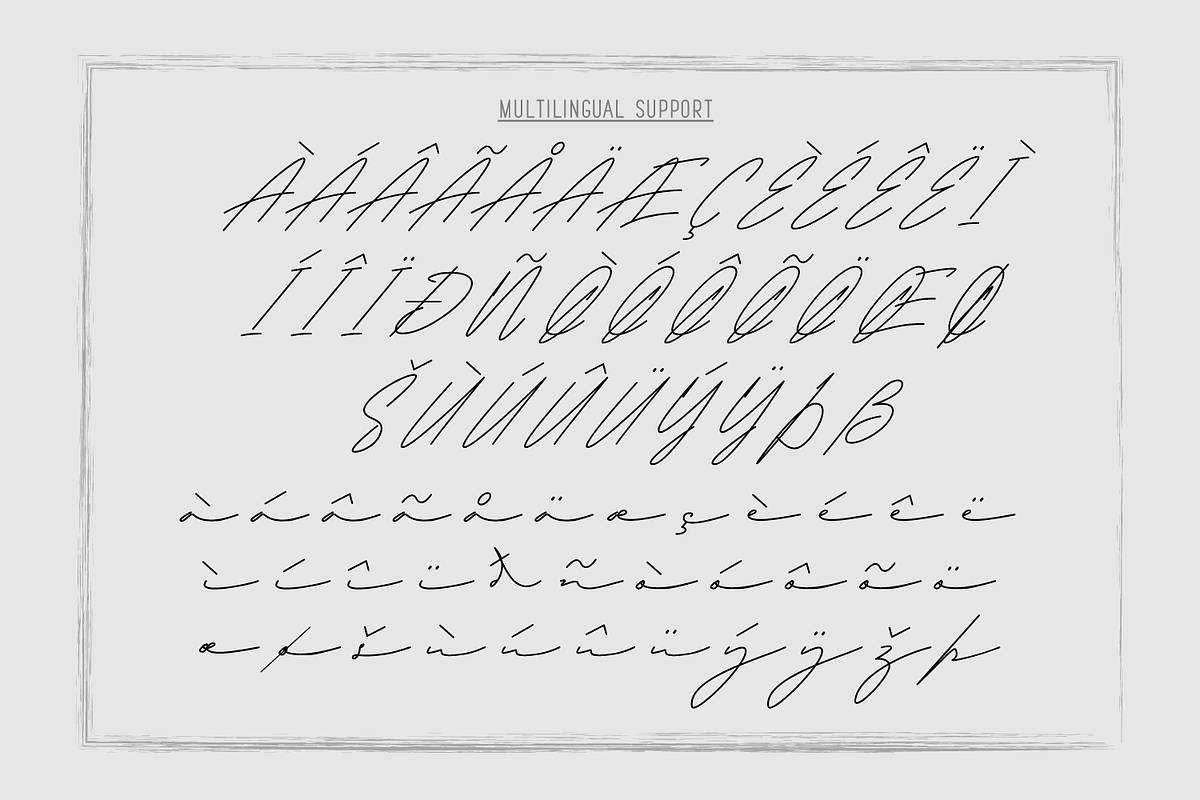 MULTILINGUAL SUPPORT
ÀÁÂÃÅÄÆÇÈÉÊËÌ
ÍÎÏÐÑÒÓÔÕÖŒØ
ŠÙÚÛÜÝŸÞß
àáâãåäæçèéêë
ìíîïðñòóôõö
œøšùúûüýÿžþ